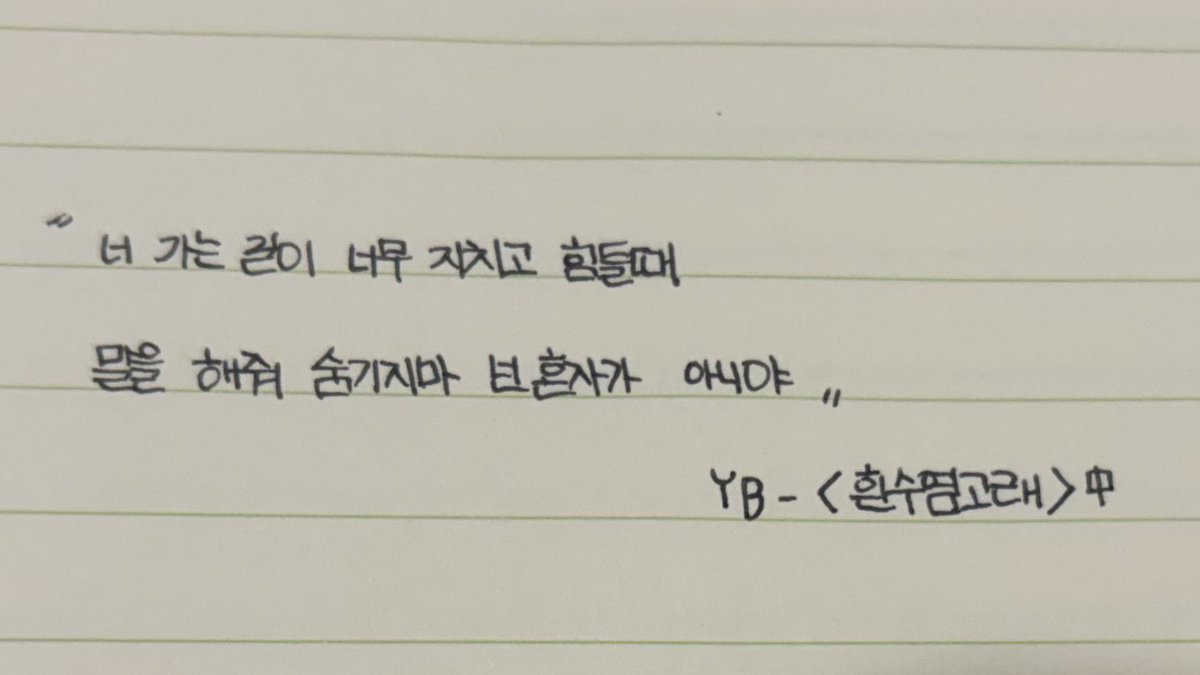 " 너 가는 길이 너무 지치고 힘들때
말을 해줘 숨기지마 넌 혼자가 아니야 "
YB - <흰수염고래> 中